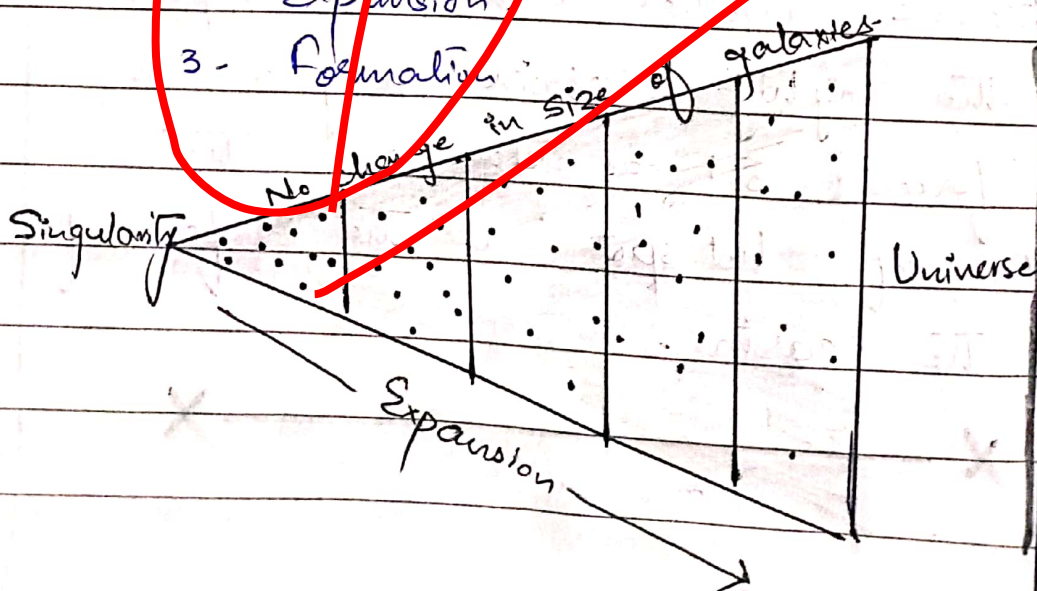 Expansion
3 - Formation
No change in size of galaxies
Singularity
Universe
Expansion